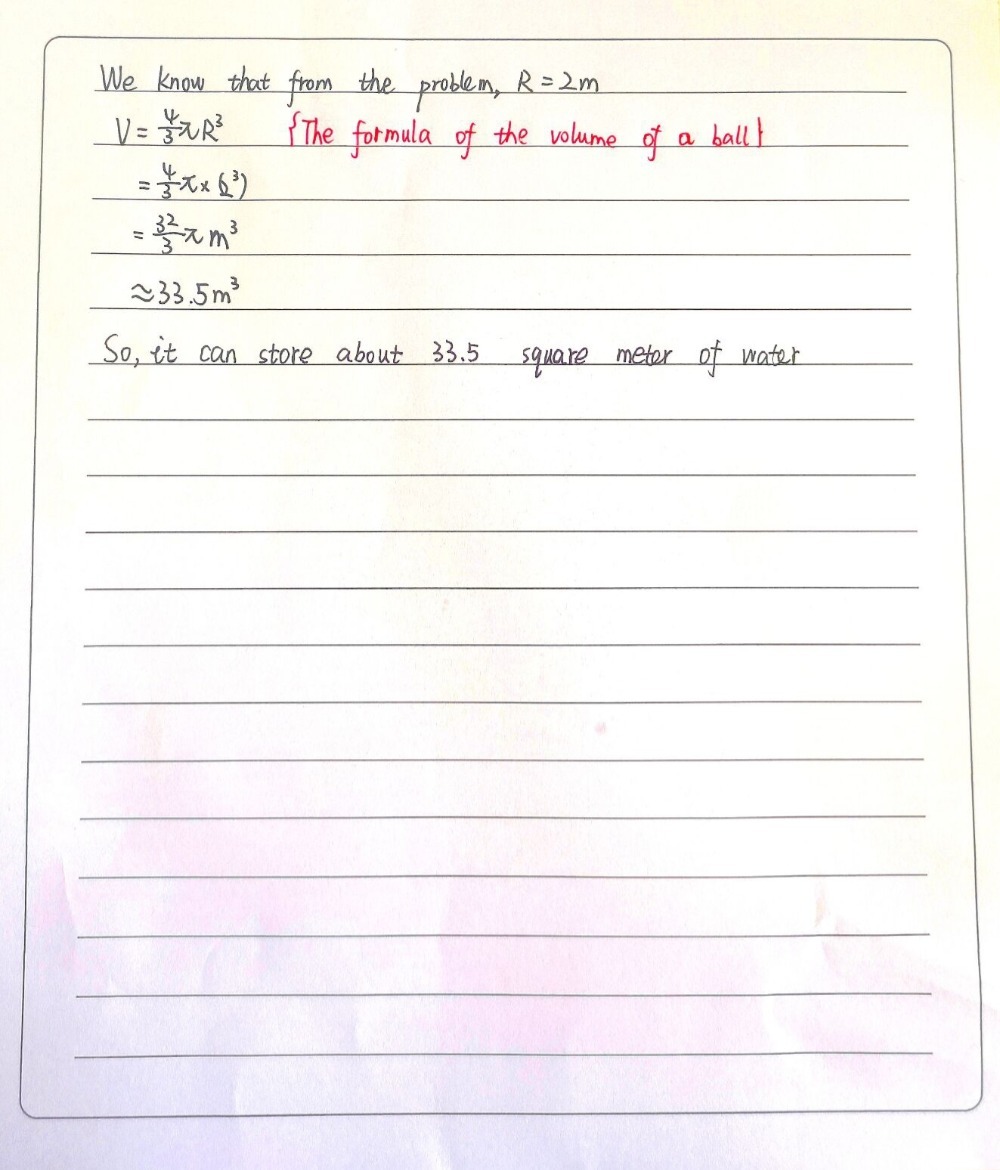 We know that from the problem, R = 2m
V = 4/3 π R³ {The formula of the volume of a ball}
= 4/3 π × (2³)
= 32/3 π m³
≈ 33.5 m³
So, it can store about 33.5 square meter of water